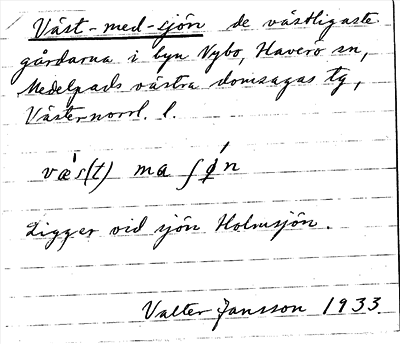 Väst-med-sjön de västligaste
gårdarna i byn Nybo, Haverö sn,
Medelpads västra domsagas tg,
Västernorrl. l.
væ's(t) ma ʃǿn
Ligger vid sjön Holmsjön.
Valter Jansson 1933.